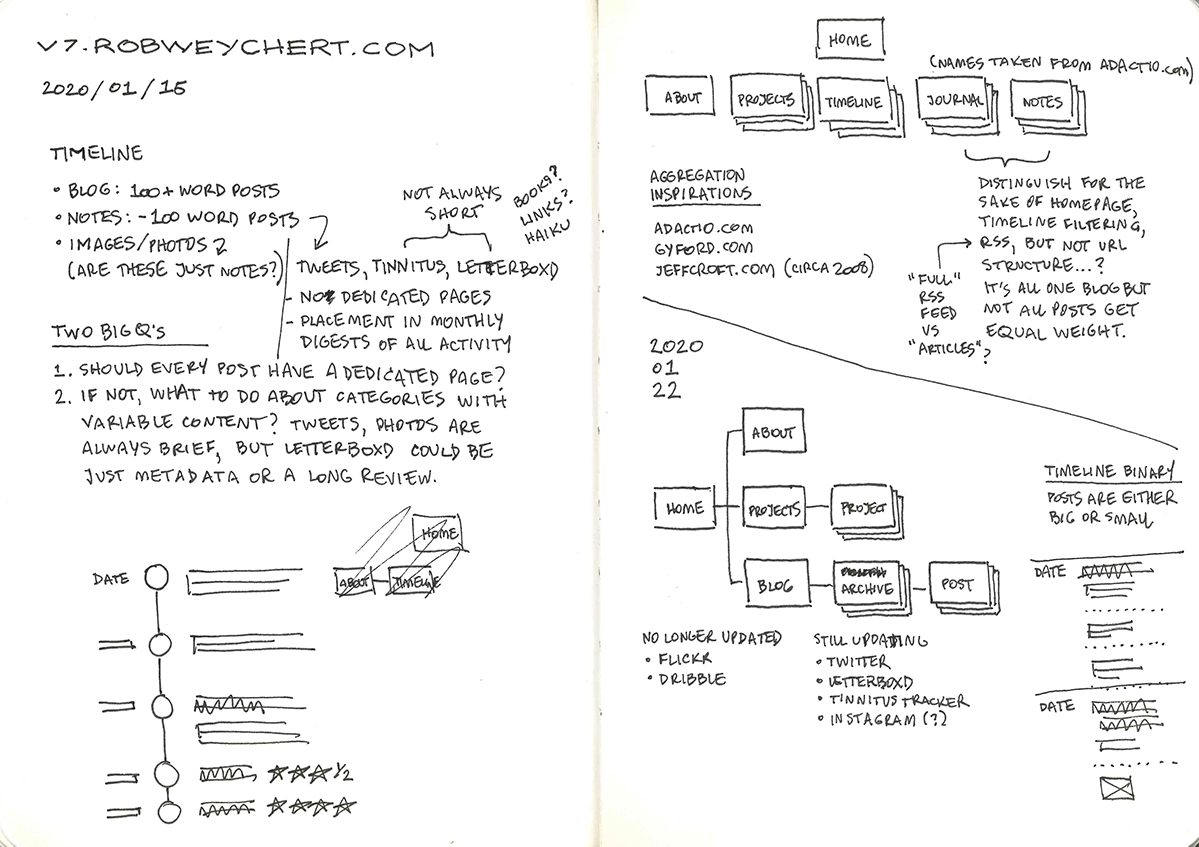 V7.ROBWEYCHERT.COM
2020/01/15
TIMELINE
• BLOG: 100+ WORD POSTS
• NOTES: -100 WORD POSTS
• IMAGES/PHOTOS
(ARE THESE JUST NOTES?)
NOT ALWAYS
SHORT
BOOKS?
LINKS?
HAIKU
TWEETS, TINNITUS, LETTERBOXD
- NO DEDICATED PAGES
- PLACEMENT IN MONTHLY
DIGESTS OF ALL ACTIVITY
TWO BIG Q'S
1. SHOULD EVERY POST HAVE A DEDICATED PAGE?
2. IF NOT, WHAT TO DO ABOUT CATEGORIES WITH
VARIABLE CONTENT? TWEETS, PHOTOS ARE
ALWAYS BRIEF, BUT LETTERBOXD COULD BE
JUST METADATA OR A LONG REVIEW.
HOME
ABOUT
TIMELINE
DATE
1/2
HOME
(NAMES TAKEN FROM ADACTIO.com)
ABOUT
PROJECTS
TIMELINE
JOURNAL
NOTES
AGGREGATION
INSPIRATIONS
ADACTIO.COM
GYFORD.COM
JEFFCROFT.COM (CIRCA 2008)
DISTINGUISH FOR THE
SAKE OF HOMEPAGE,
TIMELINE FILTERING,
RSS, BUT NOT URL
STRUCTURE...?
IT'S ALL ONE BLOG BUT
NOT ALL POSTS GET
EQUAL WEIGHT.
"FULL"
RSS
FEED
VS
"ARTICLES"?
2020
01
22
ABOUT
HOME
PROJECTS
PROJECT
BLOG
ARCHIVE
POST
NO LONGER UPDATED
• FLICKR
• DRIBBLE
STILL UPDATING
• TWITTER
• LETTERBOXD
• TINNITUS TRACKER
• INSTAGRAM (?)
TIMELINE BINARY
POSTS ARE EITHER
BIG OR SMALL
DATE
DATE